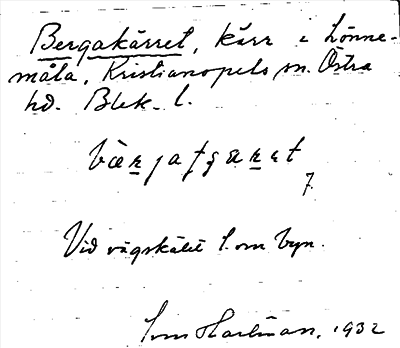 Bergakärret, kärr i Lönne-
måla, Kristianopels sn. Östra
hd. Blek. l.
Vid vägskälet S. om byn.
Hartman, 1932